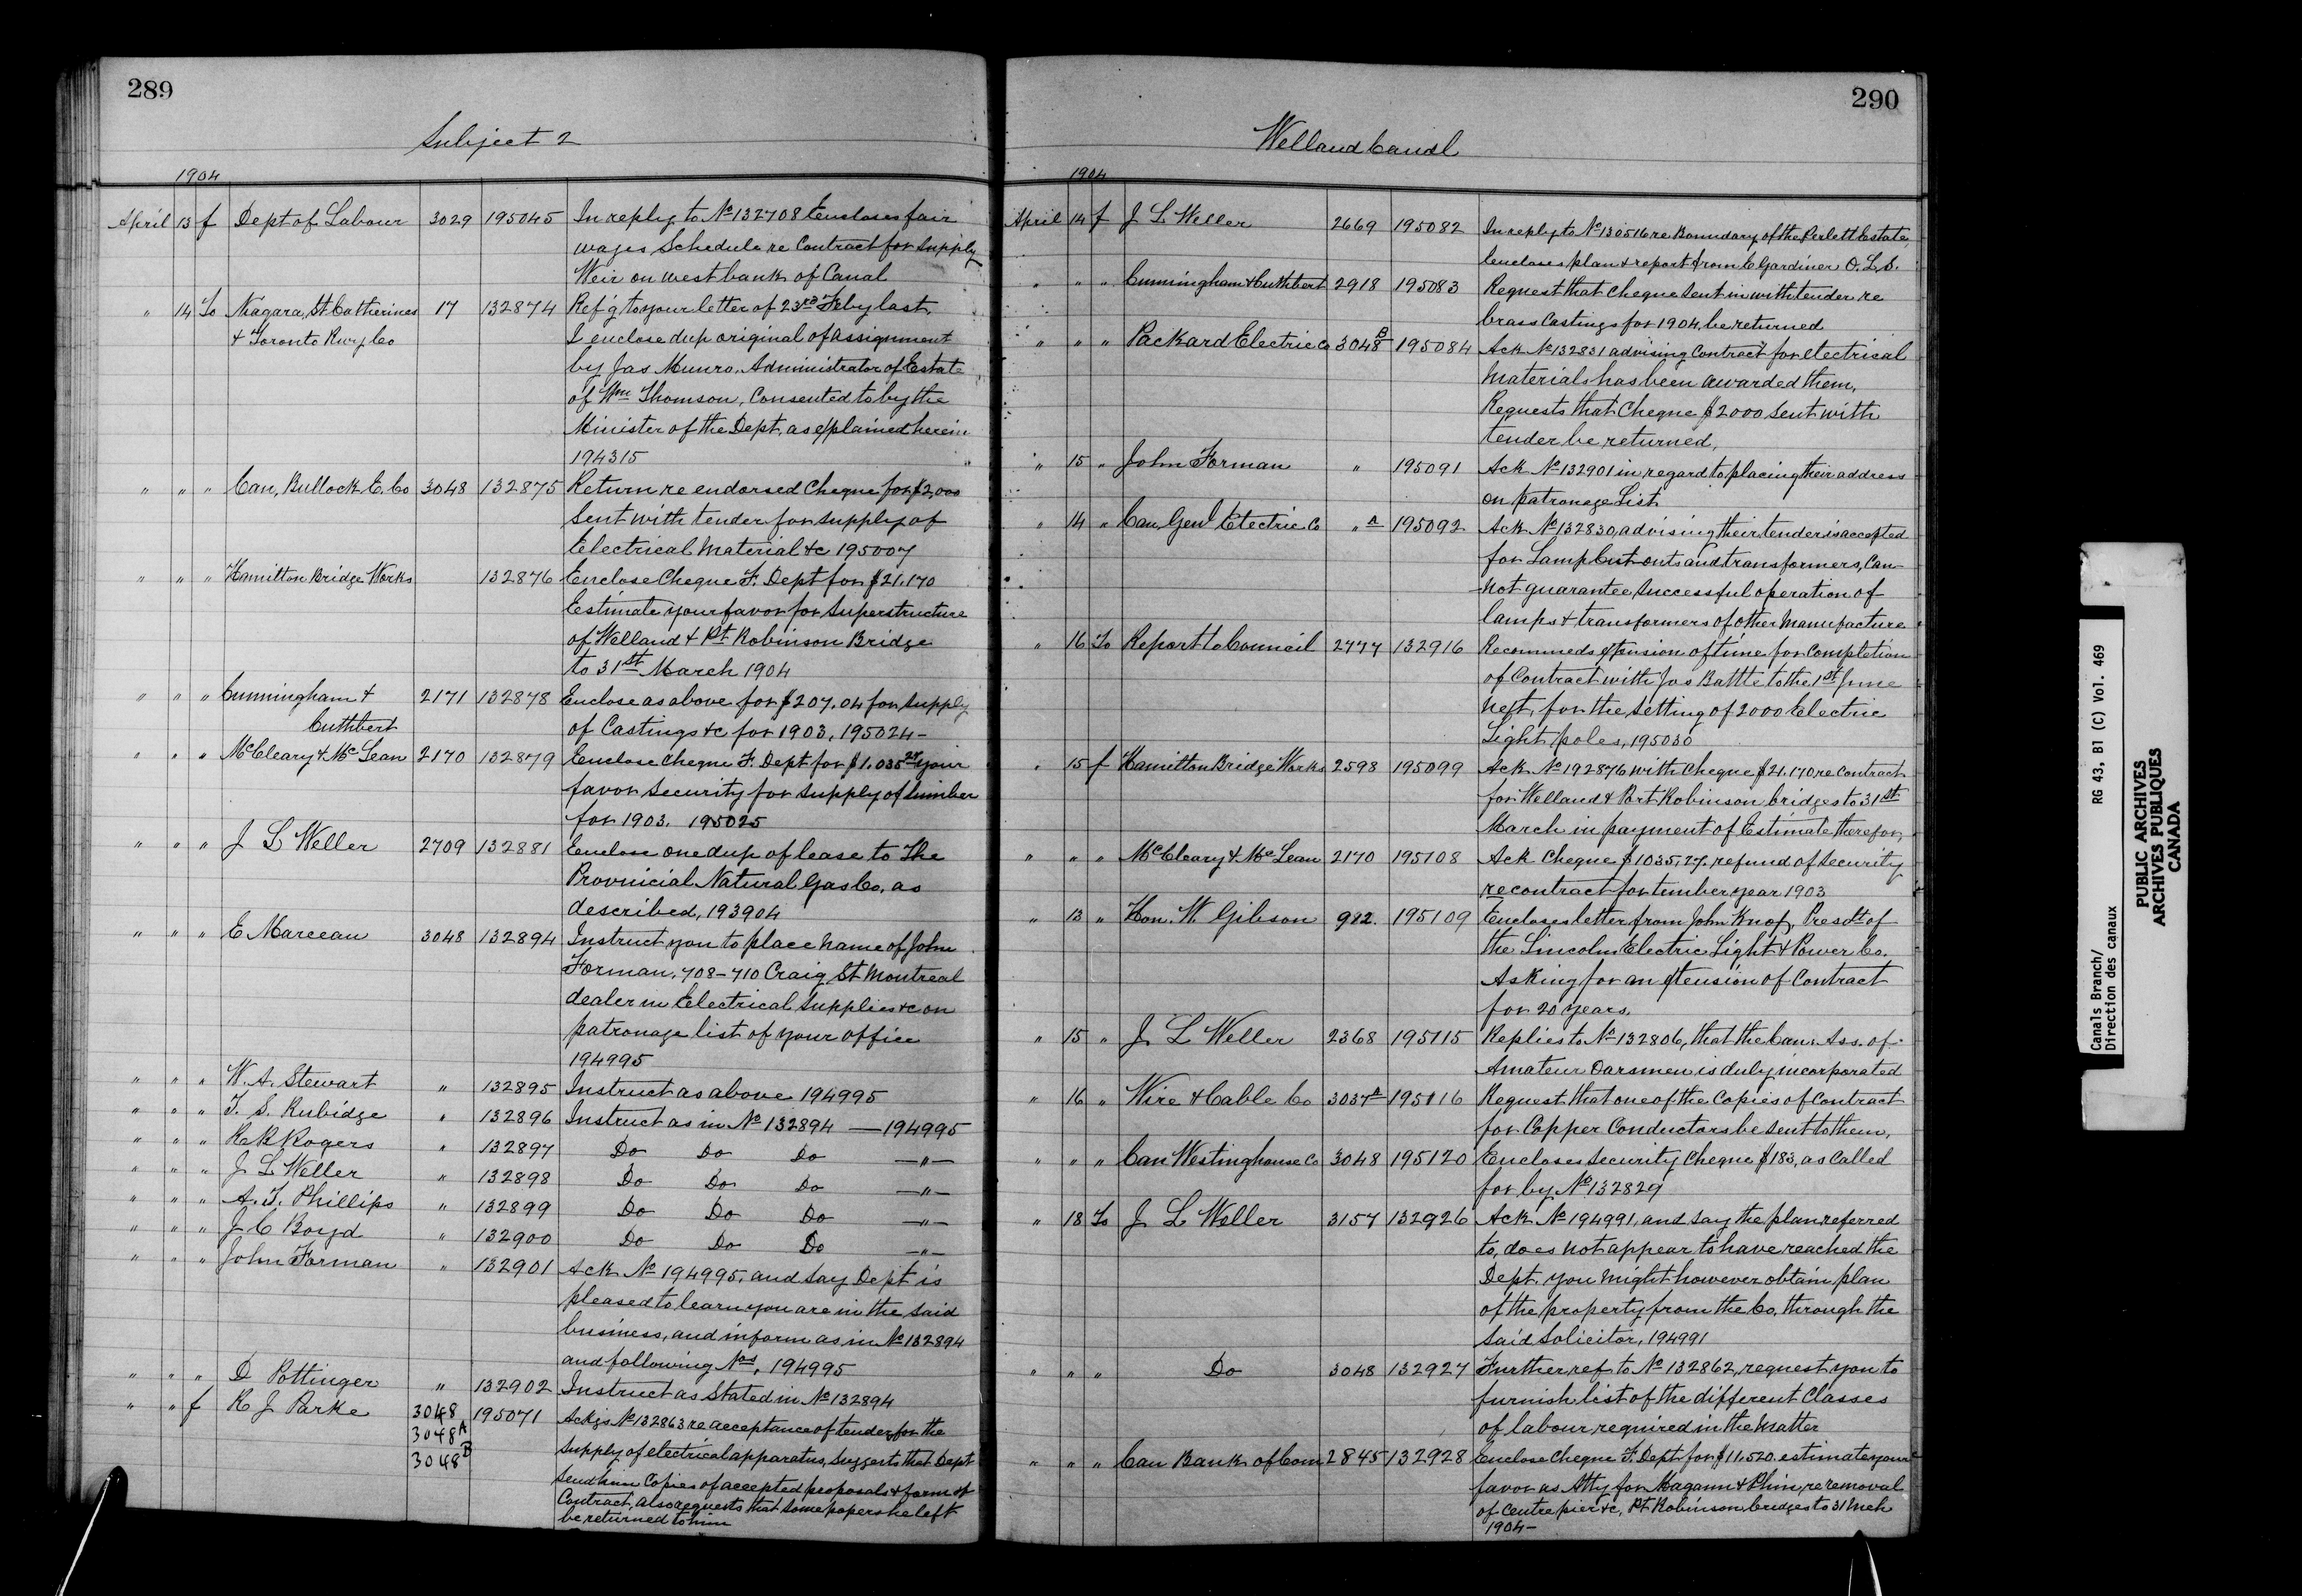 289
Subject 2
1904
April 13 f Dept of Labour 3029 195045 In reply to No 132708 Encloses fair
wages Schedule re Contract for Supply
Weir on west bank of Canal
" 14 To Niagara, St Catherines 17 132874 Ref'g to your letter of 23rd Feby last,
& Toronto Rwy Co I enclose dup original of assignment
by Jas Munro, Administrator of Estate
of Wm Thomson, Consented to by the
Minister of the Dept, as explained herein
194315
" " " Can, Bullock E. Co 3048 132875 Return re endorsed Cheque for $2000
Sent with tender for supply of
Electrical Material &c 195007
" " " Hamilton Bridge Works 132876 Enclose Cheque F. Dept for $21.170
Estimate your favor for Superstructure
of Welland & Pt Robinson Bridge
to 31st March 1904
" " " Cunningham & 2171 132878 Enclose as above for $207.04 for Supply
Cuthbert of Castings &c for 1903, 195024-
" " " McCleary & McLean 2170 132879 Enclose Cheque F. Dept for $1.035 27 your
favor Security for Supply of lumber
for 1903. 195025
" " " J L Weller 2709 132881 Enclose one dup of lease to The
Provinicial Natural Gas Co. as
described, 193904
" " " E Marceau 3048 132894 Instruct you to place name of John
Forman, 708-710 Craig St Montreal
dealer in Electrical Supplies &c on
patronage list of your office
194995
" " " W. A. Stewart " 132895 Instruct as above 194995
" " " T. S. Rubidge " 132896 Instruct as in No 132894 — 194995
" " " R B Rogers " 132897 Do Do Do — " —
" " " J L Weller " 132898 Do Do Do — " —
" " " A. T. Phillips " 132899 Do Do Do — " —
" " " J C Boyd " 132900 Do Do Do — " —
" " " John Forman " 132901 Ack No 194995, and say Dept is
pleased to learn you are in the said
business, and inform as in No 132894
and following Nos, 194995
" " " D Pottinger " 132902 Instruct as Stated in No 132894
" " f R J Parke 3048 195071 Ackgs No 132863 re acceptance of tenders for the
3048 A supply of electrical apparatus, suggests that Dept
3048 B send him Copies of accepted proposals & form of
Contract, also requests that some papers he left
be returned to him
290
Welland Canal
1904
April 14 f J L Weller 2669 195082 In reply to No 130516 re Boundary of the Perlett Estate,
Encloses plan & report from C Gardiner O. L. S.
" " " Cunningham & Cuthbert 2918 195083 Request that Cheque sent in with tender re
brass Castings for 1904, be returned
" " " Packard Electric Co 3048 B 195084 Ack No 132831 advising Contract for electrical
Materials has been awarded them,
Requests that Cheque $2000 sent with
tender be returned,
" 15 " John Forman " 195091 Ack No 132901 in regard to placing their address
on patronage List
" 14 " Can, Genl Electric Co " A 195092 Ack No 132830, advising their tender is accepted
for Lamp Cut-outs and transformers, Can-
not guarantee successful operation of
lamps & transformers of other manufacture
" 16 To Report to Council 2777 132916 Recommeds extension of time for Completion
of Contract with Jas Battle to the 1st June
next, for the setting of 2000 Electric
Light poles, 195030
" 15 f Hamilton Bridge Works 2598 195099 Ack No 192876 with Cheque $21.170 re contract
for Welland & Port Robinson bridges to 31st
March in payment of Estimate therefor,
" " " McCleary & McLean 2170 195108 Ack Cheque $1035,27, refund of Security
re contract for timber year 1903
" 13 " Hon. W. Gibson 912. 195109 Encloses letter from John Knox, Presdt of
the Lincoln Electric Light & Power Co.
Asking for an extension of Contract
for 20 years.
" 15 " J L Weller 2368 195115 Replies to No 132806, that the Can. Ass. of
Amateur Oarsmen is duly incorporated
" 16 " Wire & Cable Co 3037 A 195116 Request that one of the Copies of Contract
for Copper Conductors be sent to them,
" " " Can Westinghouse Co 3048 195120 Encloses Security Cheque $183, as Called
for by No 132829
" 18 To J L Weller 3157 132926 Ack No 194991, and say the plan referred
to, does not appear to have reached the
Dept. you might however obtain plan
of the property from the Co. through the
said Solicitor, 194991
" " " Do 3048 132927 Further ref to No 132862, request you to
furnish list of the different Classes
of labour required in the matter
" " " Can Bank of Com 2845 132928 Enclose Cheque F. Dept for $11,520. estimate your
favor as Atty for Magann & Phin, re removal
of Centre pier &c, Pt Robinson bridges to 31 Mch
1904-
Canals Branch/ RG 43, B1 (C) Vol. 469
Direction des canaux
PUBLIC ARCHIVES
ARCHIVES PUBLIQUES
CANADA